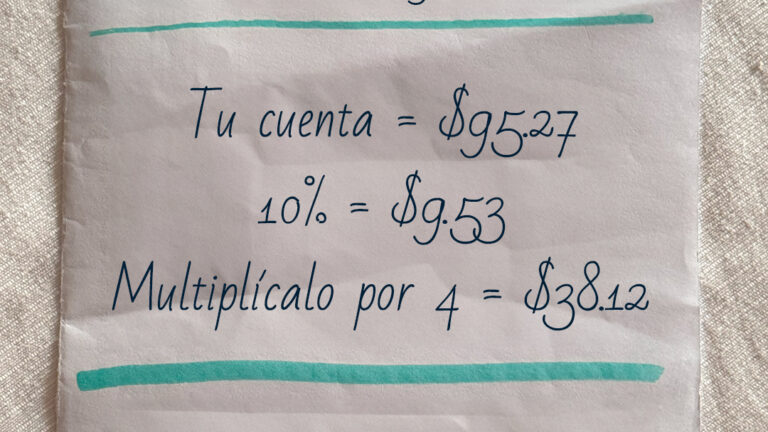 Tu cuenta = $95.27
10% = $9.53
Multiplícalo por 4 = $38.12